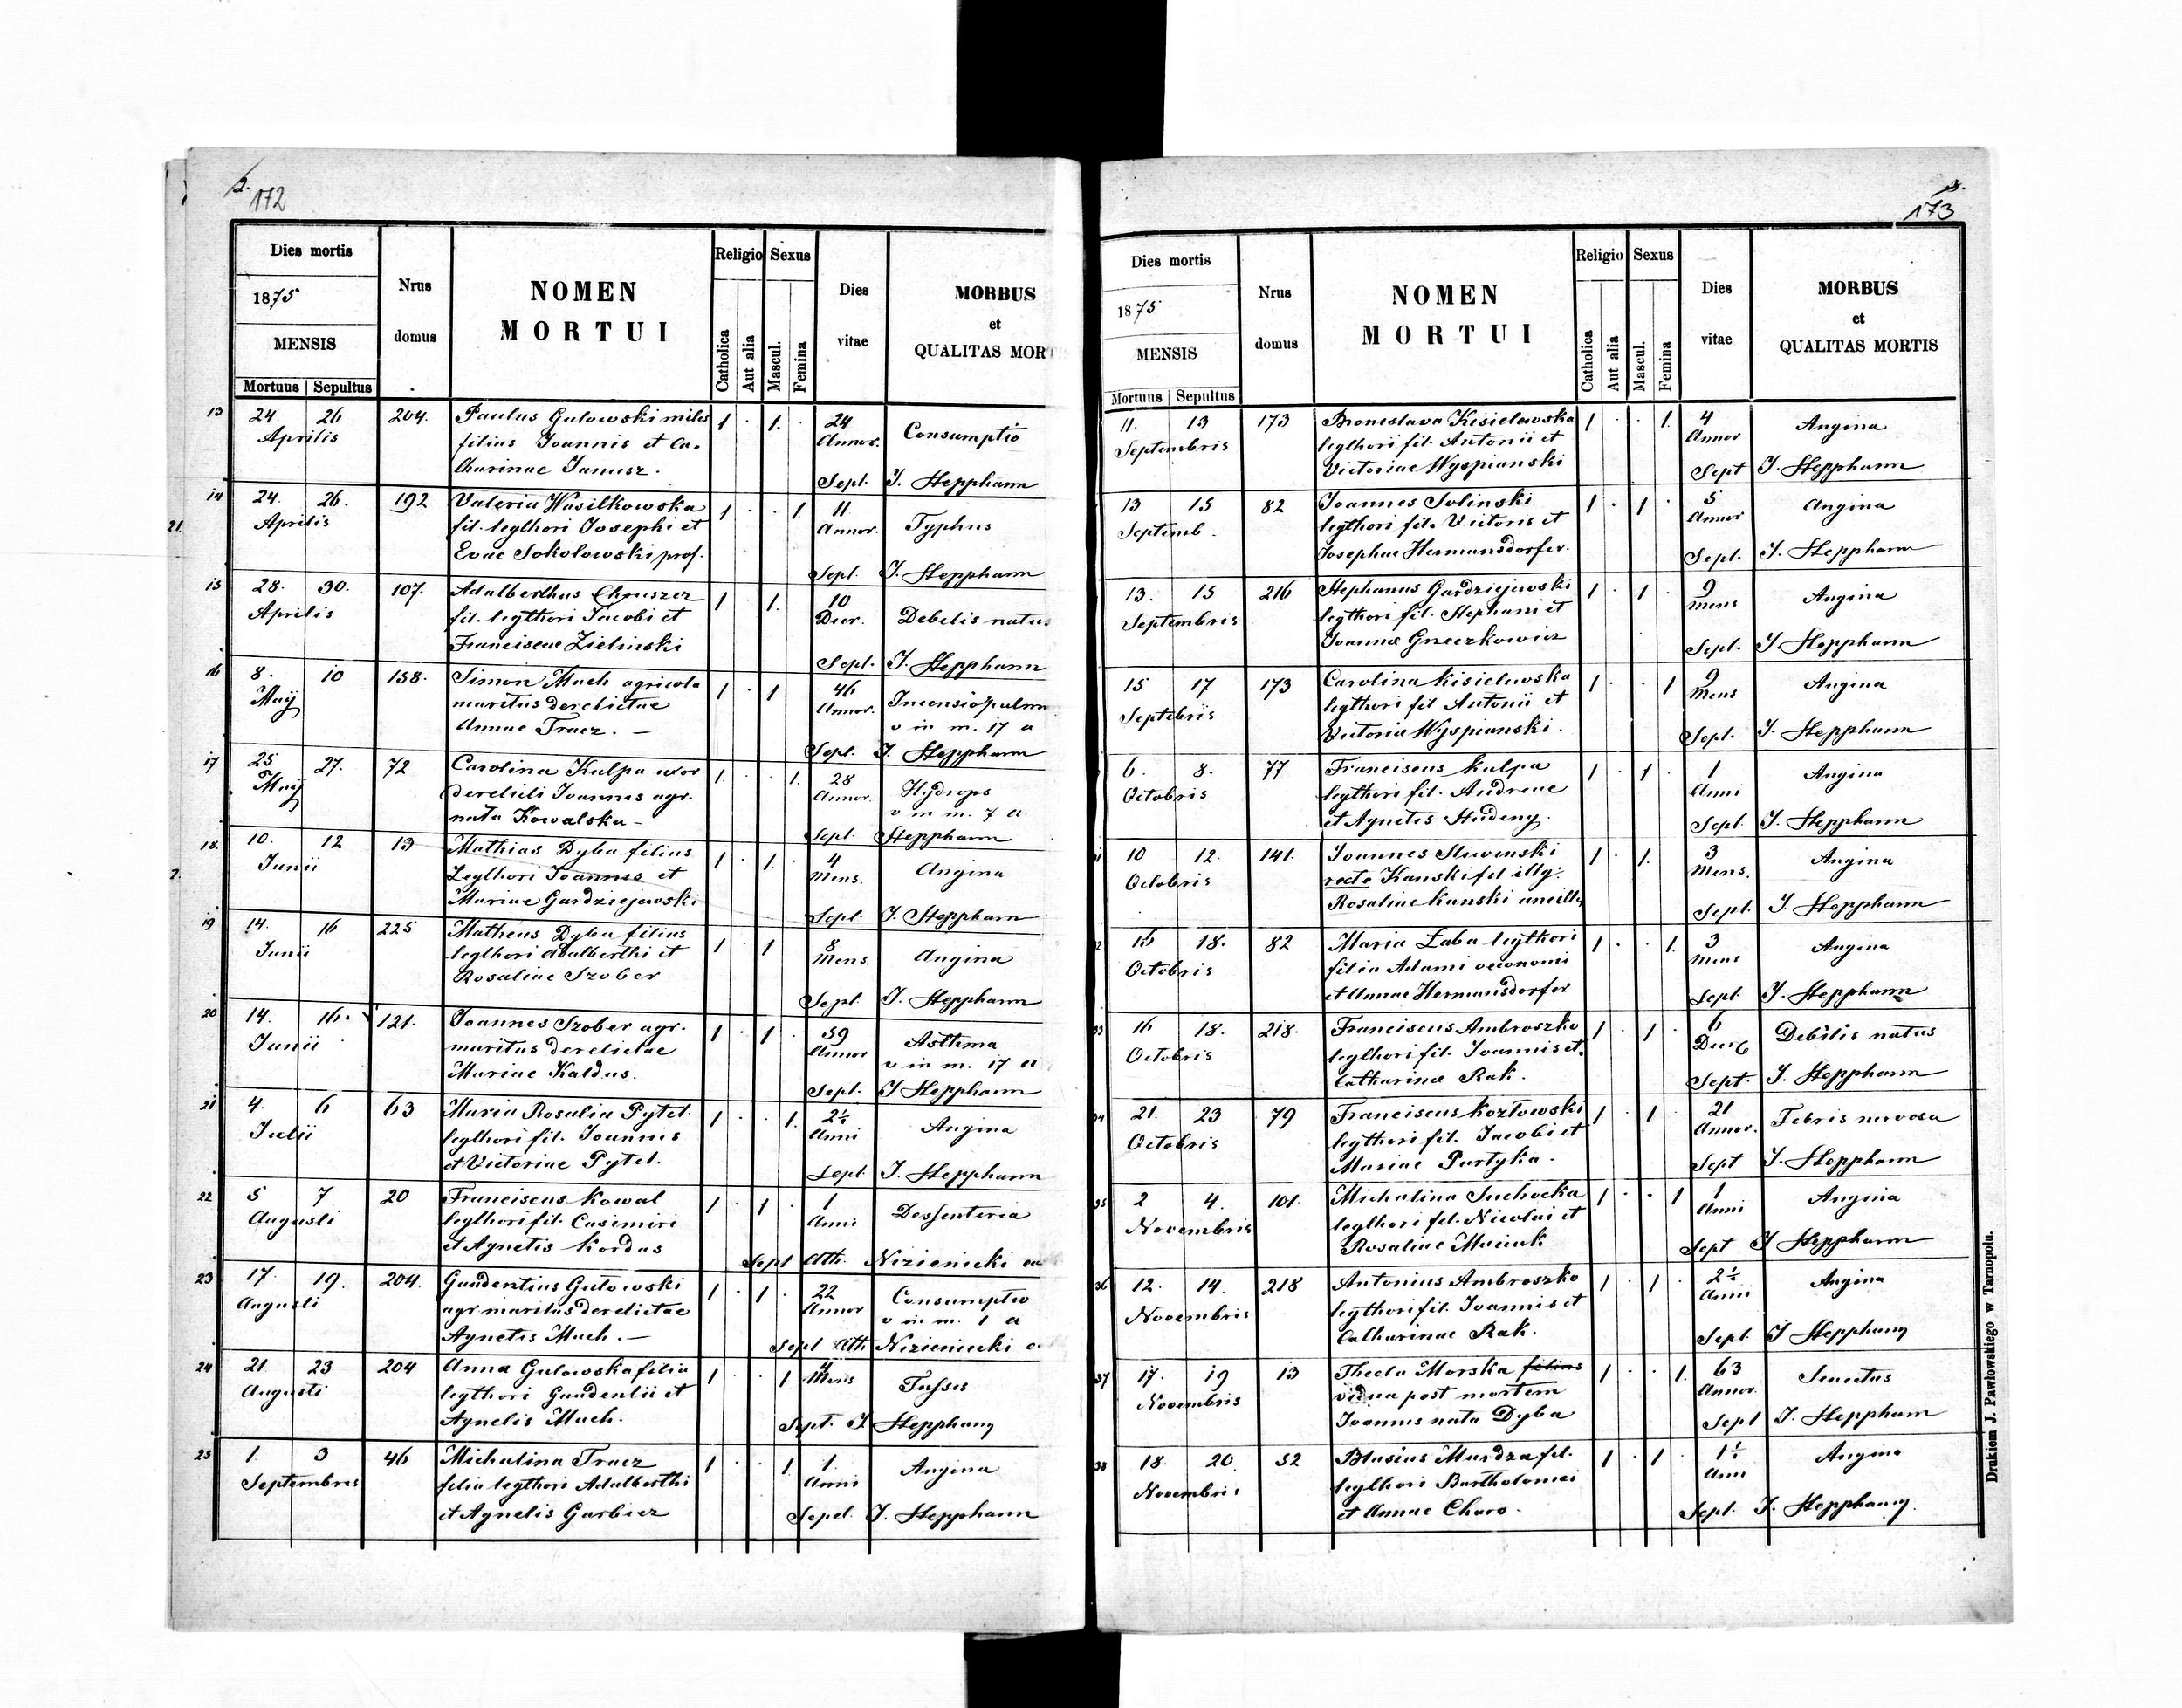 2.
172
Dies mortis
1875
MENSIS
Mortuus Sepultus
Nrus
domus
NOMEN
MORTUI
Religio
Catholica
Aut alia
Sexus
Mascul.
Femina
Dies
vitae
MORBUS
et
QUALITAS MORT
13 24. 26 204. Paulus Gulowski miles 1 . 1. 24
Aprilis filius Joannis et Ca- Annor. Consumptio
tharinae Janusz.
Sepl. J. Stepphann
14 24. 26. 192 Valeria Wasilkowska 1 . . 1. 11
21. Aprilis fil. legthori Josephi et Annor. Typhus
Evae Sokolowski prof.
Sepl. J. Stepphann
15 28. 30. 107. Adalberthus Chruszcz 1 . 1. 10
Aprilis fil. legthori Jacobi et Dier. Debelis natus
Franciscae Zielinski
Sepl. J. Stepphann
16 8. 10 158. Simon Much agricola 1 . 1 46
Maij maritus derelictae Annor. Incensio pulm
Annae Tracz. — v in m. 17 a
Sepl. J. Stepphann
17 25 27. 72 Carolina Kulpa uxor 1. . . 1. 28
Maij derelicti Joannis agr. Annor. Hydrops
nata Kowalska – v in m. 7 a.
Sepl. Stepphann
18. 10. 12 13 Mathias Dyba filius 1 . 1. . 4
7. Junii Legthori Joannes et Mens. Angina
Mariae Gardziejewski
Sepl. J. Stepphann
19 14. 16 225 Matheus Dyba filius 1 . 1 8
Junii legthori Adalberthi et Mens. Angina
Rosaliae Szober.
Sepl. J. Stepphann
20 14. 16. 121. Joannes Szober agr. 1 . 1 . 59
Junii maritus derelictae Annor Asthma
Mariae Kaldus. v in m. 17 a
Sepl. J Stepphann
21 4. 6 63 Maria Rosalia Pytel 1 . . 1. 2½
Julii legthori fil. Joannis Anni Angina
et Victoriae Pytel.
Sepl. J. Stepphann
22 5 7 20 Franciscus Kowal 1 . 1 . 1
Augusti legthori fil. Casimiri Anni Dessenterea
et Agnetis Kordas
Sepl Ath. Nizieniecki
23 17. 19. 204. Gaudentius Gulowski 1 . 1 . 22
Augusti agr maritus derelictae Annor Consumptio
Agnetis Much. — v in m. 1 a
Sepl Ath Nizieniecki
24 21 23 204 Anna Gulowska filia 1 . . 1 4
Augusti legthori Gaudentii et Mens Tussis
Agnetis Much.
Sept. J. Stepphann
25 1 3 46 Michalina Tracz 1 . . 1. 1.
Septembris filia legthori Adalberthi Anni Angina
et Agnetis Garbicz
Sepel. J. Stepphann
173
Dies mortis
1875
MENSIS
Mortuus Sepultus
Nrus
domus
NOMEN
MORTUI
Religio
Catholica
Aut alia
Sexus
Mascul.
Femina
Dies
vitae
MORBUS
et
QUALITAS MORTIS
11. 13 173 Bronislava Kisielewska 1 . . 1. 4
Septembris legthori fil. Antonii et Annor Angina
Victoriae Wyspianski Sept J. Stepphann
13 15 82 Joannes Solinski 1 . 1 . 5
Septemb. legthori fil. Victoris et Annor Angina
Josephae Hermansdorfer. Sepl. J. Stepphann
13. 15 216 Stephanus Gardziejewski 1 . 1 . 9
Septembris legthori fil. Stephani et Mens Angina
Joannae Gneczkowicz Sepl. J. Stepphann
15 17 173 Carolina Kisielewska 1 . . 1 9
Septebris legthori fil Antonii et Mens Angina
Victoria Wyspianski. Sepl. J. Stepphann
6. 8. 77 Franciscus Kulpa 1 . 1 . 1
Octobris legthori fil. Andreae Anni Angina
et Agnetis Studeny. Sepl. J. Stepphann
31 10 12. 141. Joannes Sluvenski 1 . 1. 3
Octobris recte Kanski fil illg. Mens. Angina
Rosaliae Kanski ancillae Sepl. J. Stepphann
32 16 18. 82 Maria Laba legthori 1 . . 1. 3
Octobris filia Adami oeconomi Mens Angina
et Annae Hermansdorfer Sepl. J. Stepphann
33 16 18. 218. Franciscus Ambroszko 1 . 1 6
Octobris legthori fil. Joannis et Dier Debilis natus
Catharinae Rak. Sept. J. Stepphann
34 21. 23 79 Franciscus Kozłowski 1 . 1 21
Octobris legthori fil. Jacobi et Annor. Febris nervosa
Mariae Partyka. Sept J. Stepphann
35 2 4. 101. Michalina Suchocka 1 . . 1 1
Novembris legthori fil. Nicolai et Anni Angina
Rosaliae Maciuk Sept J Stepphann
36 12. 14. 218 Antonius Ambroszko 1 . 1 . 2½
Novembris legthori fil. Joannis et Anni Angina
Catharinae Rak. Sepl. J Stepphann
37 17. 19 13 Thecla Morska filius 1 . . 1. 63
Novembris vidua post mortem Annor. Senectus
Joannis nata Dyba Sepl J. Stepphann
38 18. 20. 52 Blasius Mardza fil. 1 . 1 . 1½
Novembris legthori Bartholomei Anni Angina
et Annae Charo. Sepl. J. Stepphann
Drukiem J. Pawłowskiego w Tarnopolu.